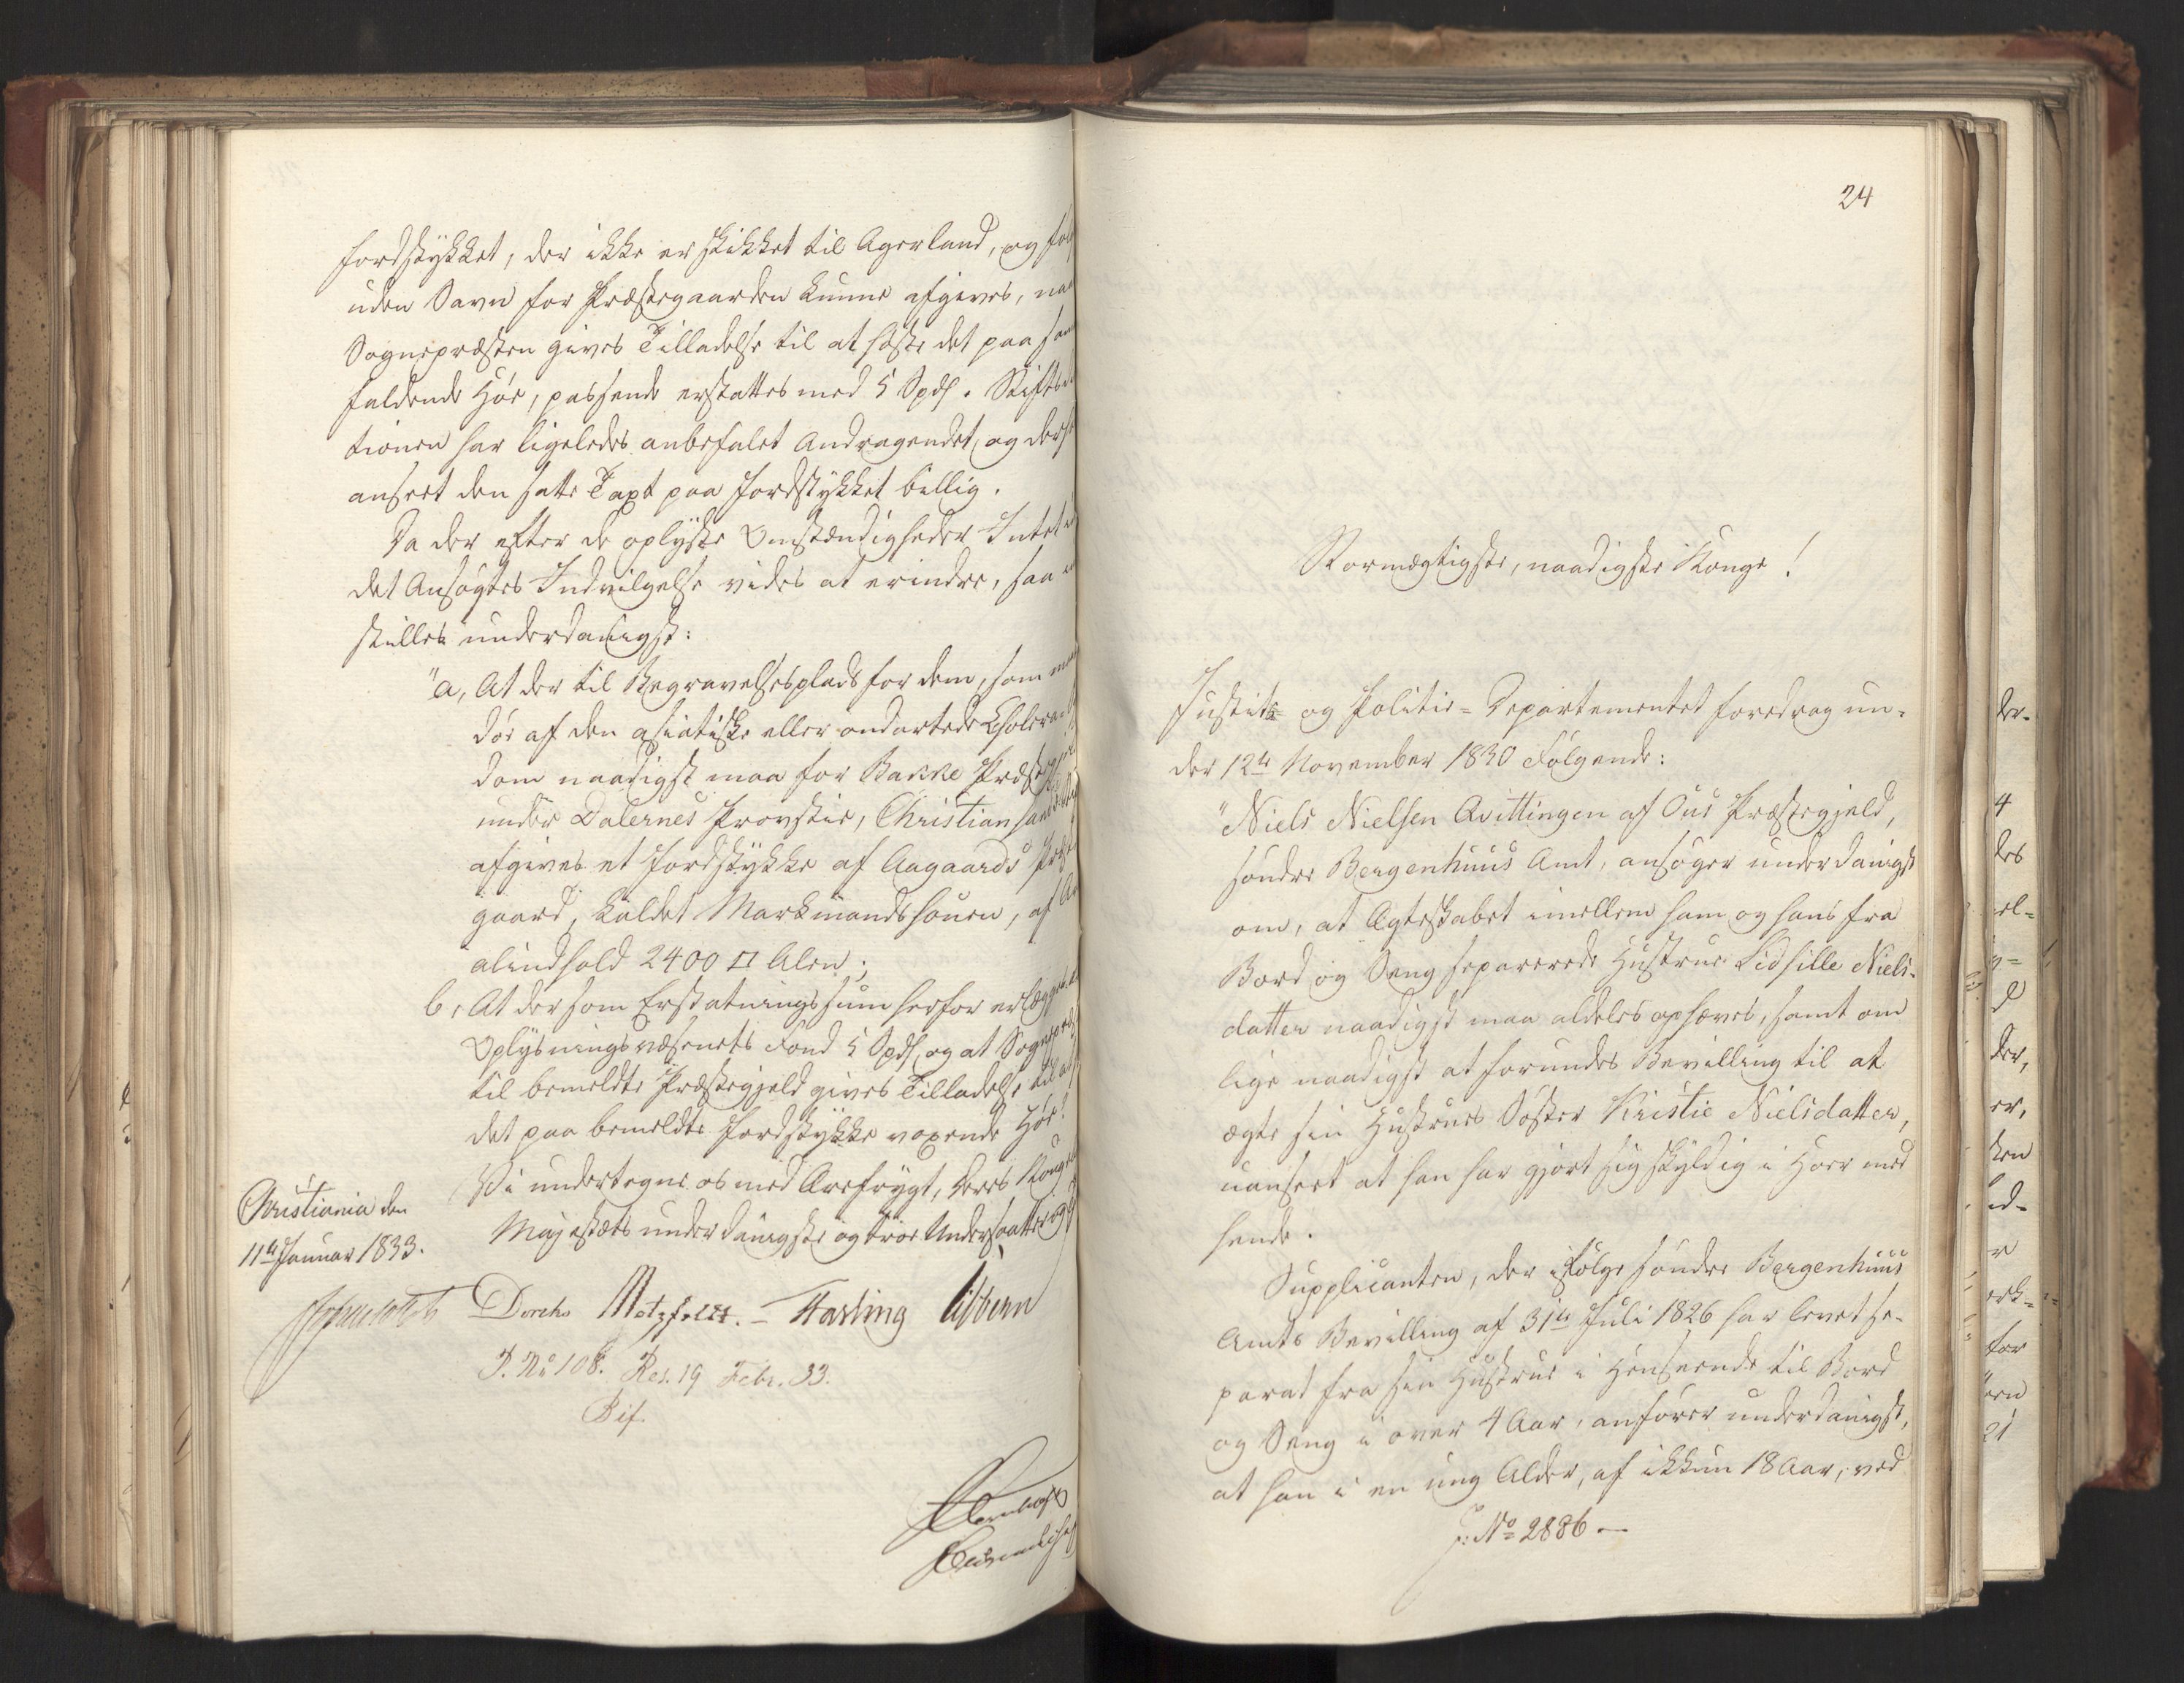 Jordstykket, der ikke er skikket til Agerland, og
uden Savn for Præstegaarden kunne afgives, naar
Sognepræsten gives Tilladelse til at høste det paa sam
faldende Høe, passende erstattes med 5 Spd. Stiftsdi
tionen har ligeledes anbefalet Andragendet, og derhos
anseet den satte Taxt paa Jordstykket billig.
Da der efter de oplyste Omstændigheder Intet
det Ansøgtes Indvilgelse vides at erindre, saa
stilles underdanigst:
"a, At der til Begravelsesplads for dem, som
døe af den asiatiske eller ondartede Cholera
dom naadigst maa for Bakke Præste
under Dalernes Provstie, Christiansands
afgives et Jordstykke af Aagaards Præste
gaard, kaldet Markmandshouen, af Are
alindhold 2400 □ Alen;
b, At der som Erstatningssum herfor erlægges
Oplysningsvæsenets Fond 5 Spd, og at Sognepræst
til bemeldte Præstegjeld gives Tilladelse til at
det paa bemeldte Jordstykke voxende Høe!
Vi undertegne os med Ærefrygt, Deres Konge
Majestæts underdanigste og troe Undersaatter
Christiania den
11te Januar 1833.
Dircks Motzfeldt. – Fasting Sibbern
P. No 108. Res. 19 Febr. 33.
Bif.
24
Stormægtigste, naadigste Konge!
Justits- og Politie-Departementet foredrog un-
der 12te November 1830 Følgende:
"Niels Nielsen Qvittingen af Ous Præstegjeld,
søndre Bergenhuus Amt, ansøger underdanigst
om, at Ægteskabet imellem ham og hans fra
Bord og Seng separerede Hustrue Lidsille Niels-
datter naadigst maa aldeles ophæves, samt om
lige naadigst at forundes Bevilling til at
ægte sin Hustrues Søster Kristie Nielsdatter,
uanseet at han har gjort sig skyldig i Hoer med
hende.
Supplicanten, der ifølge søndre Bergenhuus
Amts Bevilling af 31te Juli 1826 har levet se-
parat fra sin Hustrue i Henseende til Bord
og Seng i over 4 Aar, anfører underdanigst,
at han i en ung Alder, af ikkun 18 Aar, ved
J: No 2886 –
der-
4
des
el-
d
der,
er,
ken
ed-
r
erk-
for
ern
21